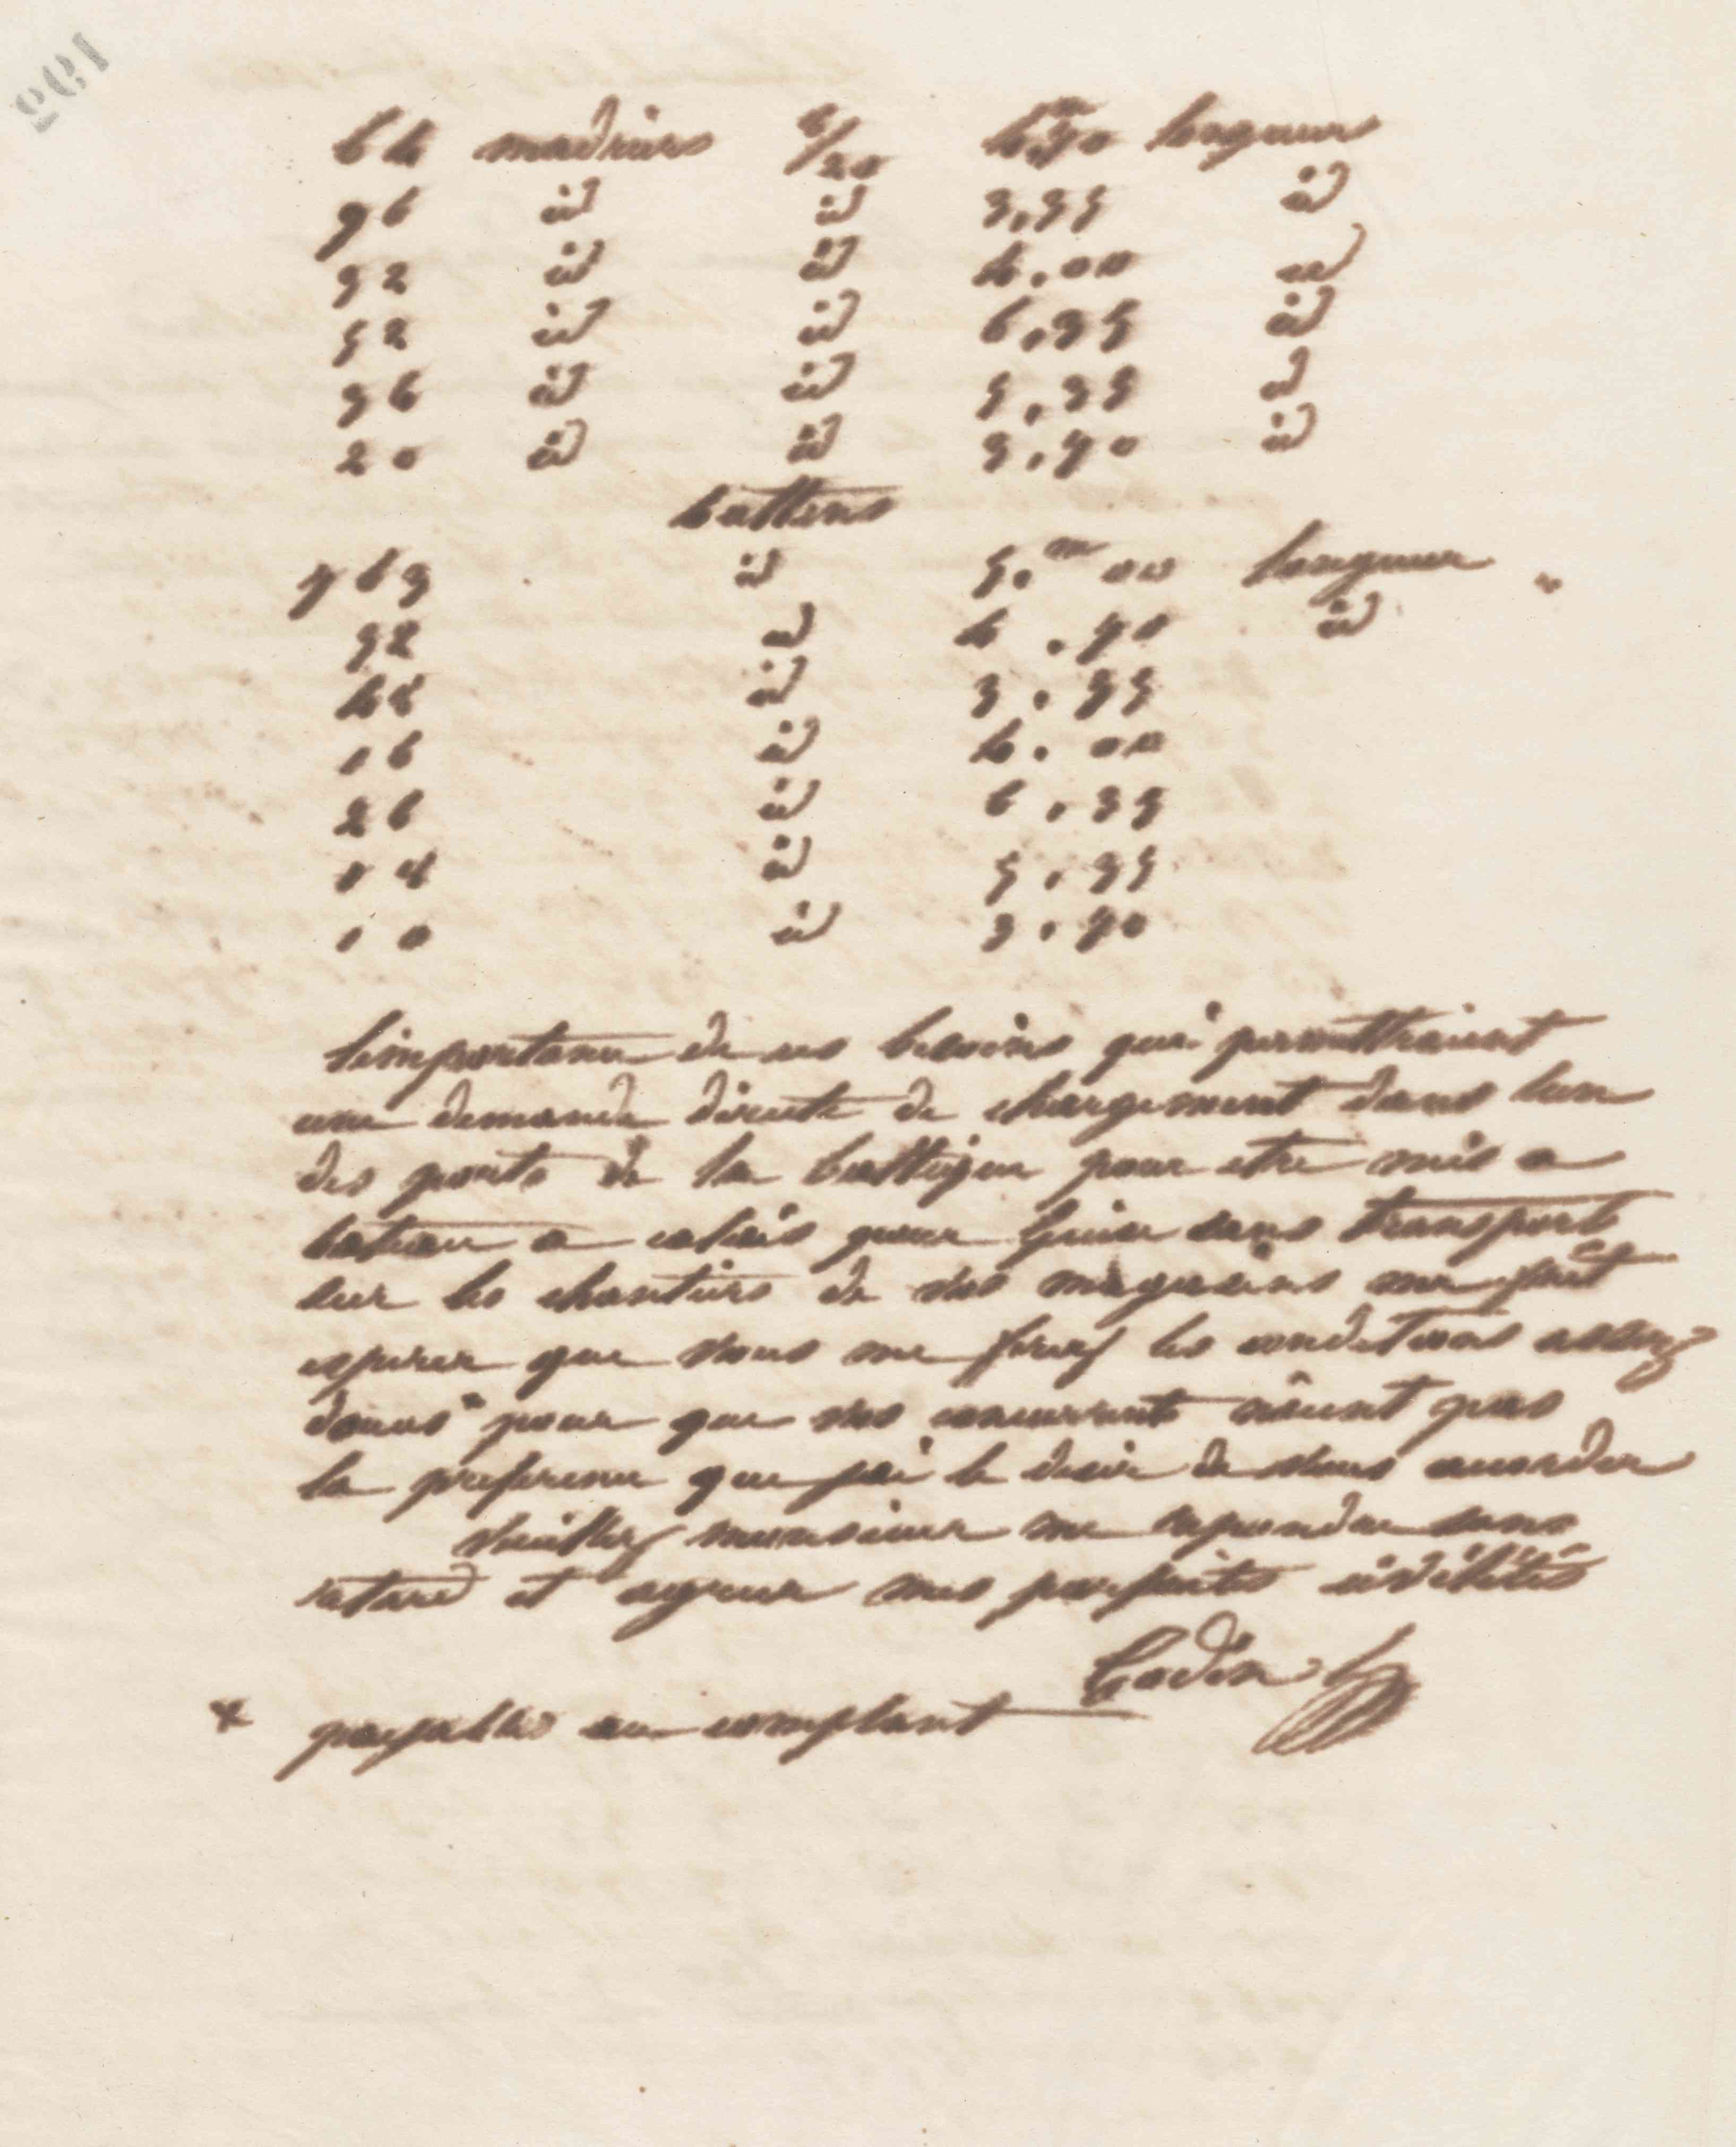 64 madriers 8/20 4,m70 longueurs
96 id id 3,35 id
32 id id 4.00 id
52 id id 6,35 id
36 id id 5,35 id
20 id id 3,70 id
battens
763 id 5.m00 longueur
32 id 4.70 id
48 id 3.35
16 id 4.00
26 id 6,35
18 id 5,35
10 id 3,70
limportance de ces besoins qui permettraient
une demande directe de chargement dans lun
des ports de la baltique pour etre mis a
bateau a calais pour Guise sans transport
sur les chantiers de vos magasins me fait
esperer que vous me ferez les conditions assez
douces pour que vos concurrents n'aient pas
la preference que jai le desir de vous accorder
Veuillez monsieur me repondre sans
retard et agreer mes parfaites civilités
Godin
x payables au comptant